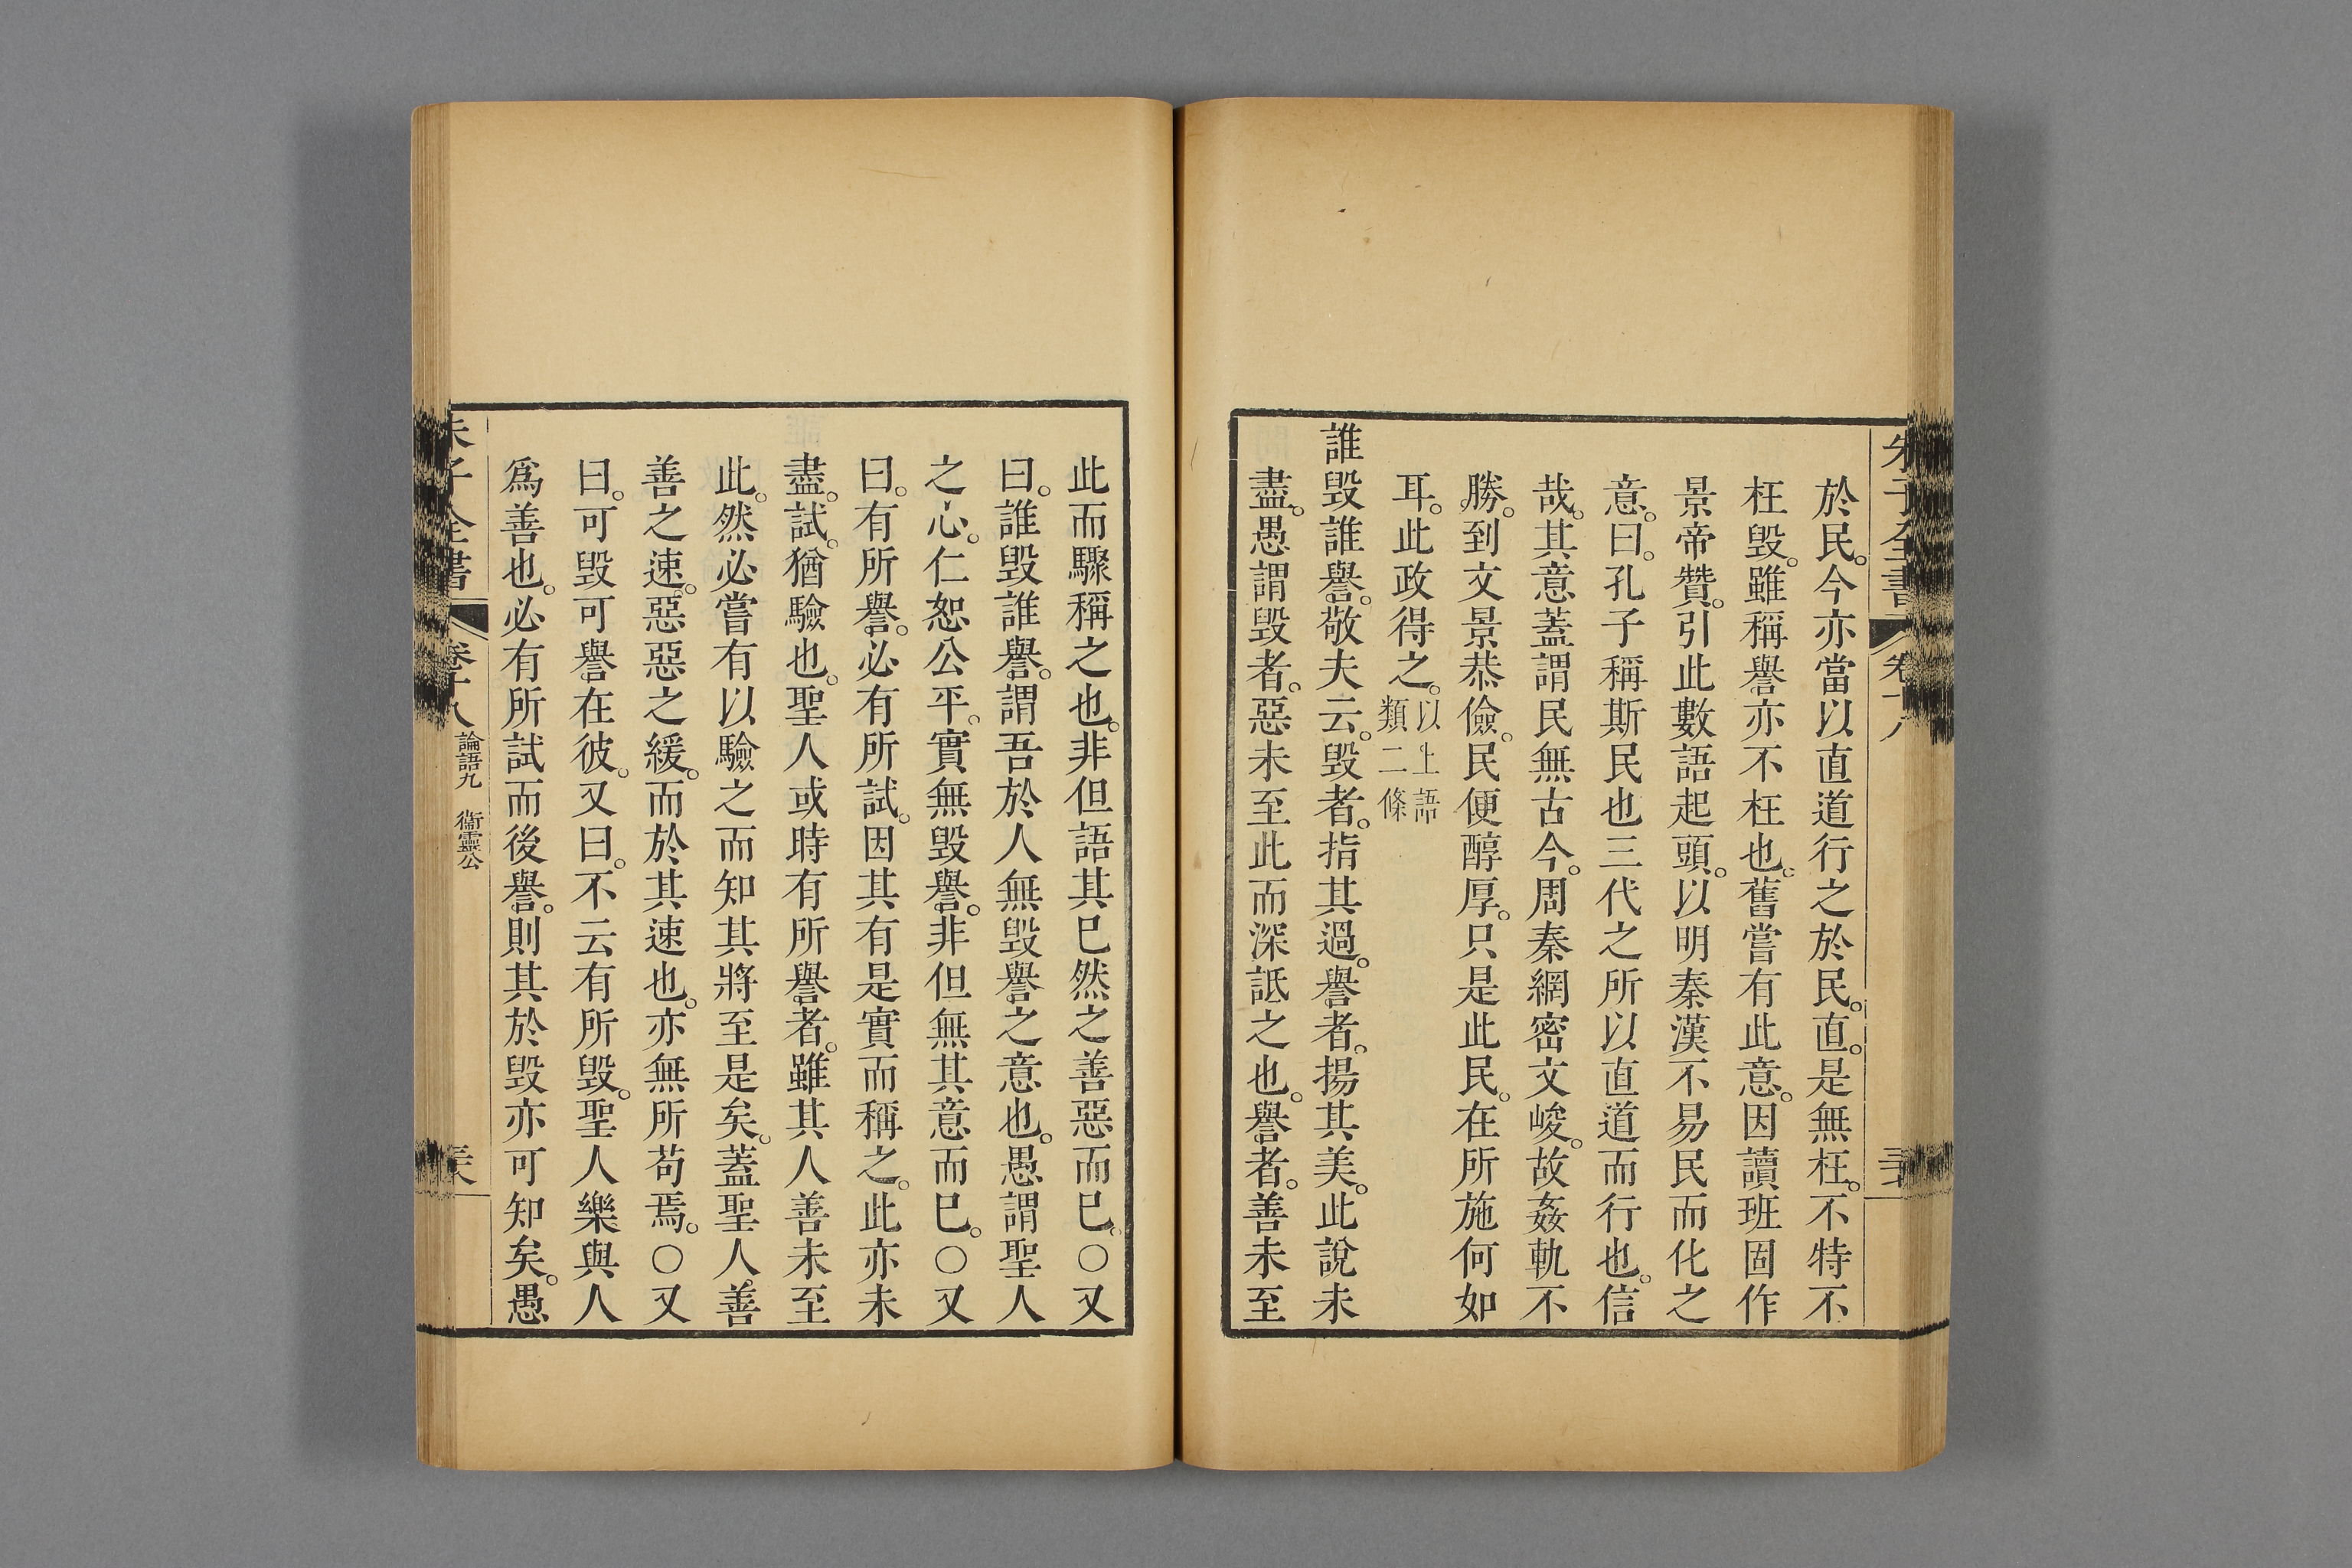 朱子全書
卷十八
於民。今亦當以直道行之於民。直。是無枉。不特不
枉毀。雖稱譽亦不枉也。舊嘗有此意。因讀班固作
景帝贊。引此數語起頭。以明秦漢不易民而化之
意。曰。孔子稱斯民也三代之所以直道而行也。信
哉。其意蓋謂民無古今。周秦網密文峻。故姦軌不
勝。到文景恭儉。民便醇厚。只是此民。在所施何如
耳。此政得之。以上語類二條
誰毀誰譽。敬夫云。毀者。指其過。譽者。揚其美。此說未
盡。愚謂毀者。惡未至此而深詆之也。譽者。善未至
此而驟稱之也。非但語其已然之善惡而已。○又
曰。誰毀誰譽。謂吾於人無毀譽之意也。愚謂聖人
之心。仁恕公平。實無毀譽。非但無其意而已。○又
曰。有所譽。必有所試。因其有是實而稱之。此亦未
盡。試。猶驗也。聖人或時有所譽者。雖其人善未至
此。然必嘗有以驗之而知其將至是矣。蓋聖人善
善之速。惡惡之緩。而於其速也。亦無所苟焉。○又
曰。可毀可譽在彼。又曰。不云有所毀。聖人樂與人
爲善也。必有所試而後譽。則其於毀亦可知矣。愚
朱子全書
卷十八
論語九 衞靈公